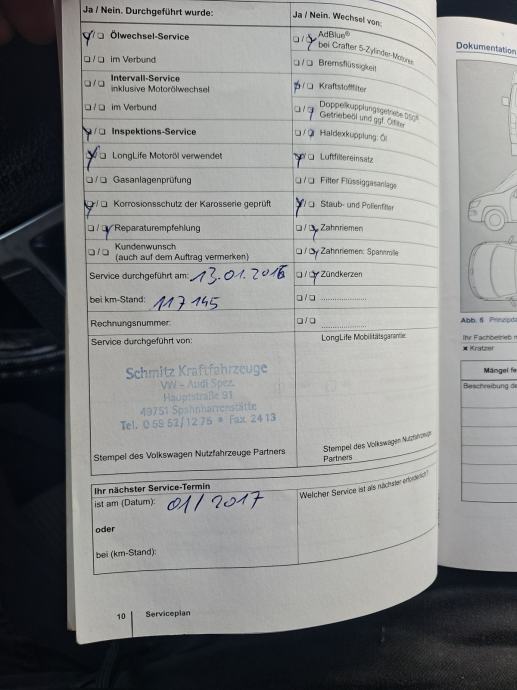 Ja / Nein. Durchgeführt wurde:
Ölwechsel-Service
im Verbund
Intervall-Service
inklusive Motorölwechsel
im Verbund
Inspektions-Service
LongLife Motoröl verwendet
Gasanlagenprüfung
Korrosionsschutz der Karosserie geprüft
Reparaturempfehlung
Kundenwunsch
(auch auf dem Auftrag vermerken)
Service durchgeführt am: 13.01.2016
bei km-Stand: 117 145
Rechnungsnummer:
Service durchgeführt von:
Schmitz Kraftfahrzeuge
VW - Audi Spez.
Hauptstraße 91
49751 Spahnharrenstätte
Tel. 0 59 52/12 76 * Fax 24 13
Stempel des Volkswagen Nutzfahrzeuge Partners
Ja / Nein. Wechsel von:
AdBlue®
bei Crafter 5-Zylinder-Motoren
Bremsflüssigkeit
Kraftstofffilter
Doppelkupplungsgetriebe DSG®
Getriebeöl und ggf. Ölfilter
Haldexkupplung: Öl
Luftfiltereinsatz
Filter Flüssiggasanlage
Staub- und Pollenfilter
Zahnriemen
Zahnriemen: Spannrolle
Zündkerzen
LongLife Mobilitätsgarantie:
Stempel des Volkswagen Nutzfahrzeuge
Partners
Ihr nächster Service-Termin
ist am (Datum): 01/2017
oder
bei (km-Stand):
Welcher Service ist als nächster erforderlich?
10 Serviceplan
Dokumentation
Abb. 6
Ihr Fachbetrieb
Kratzer
Mängel
Beschreibung